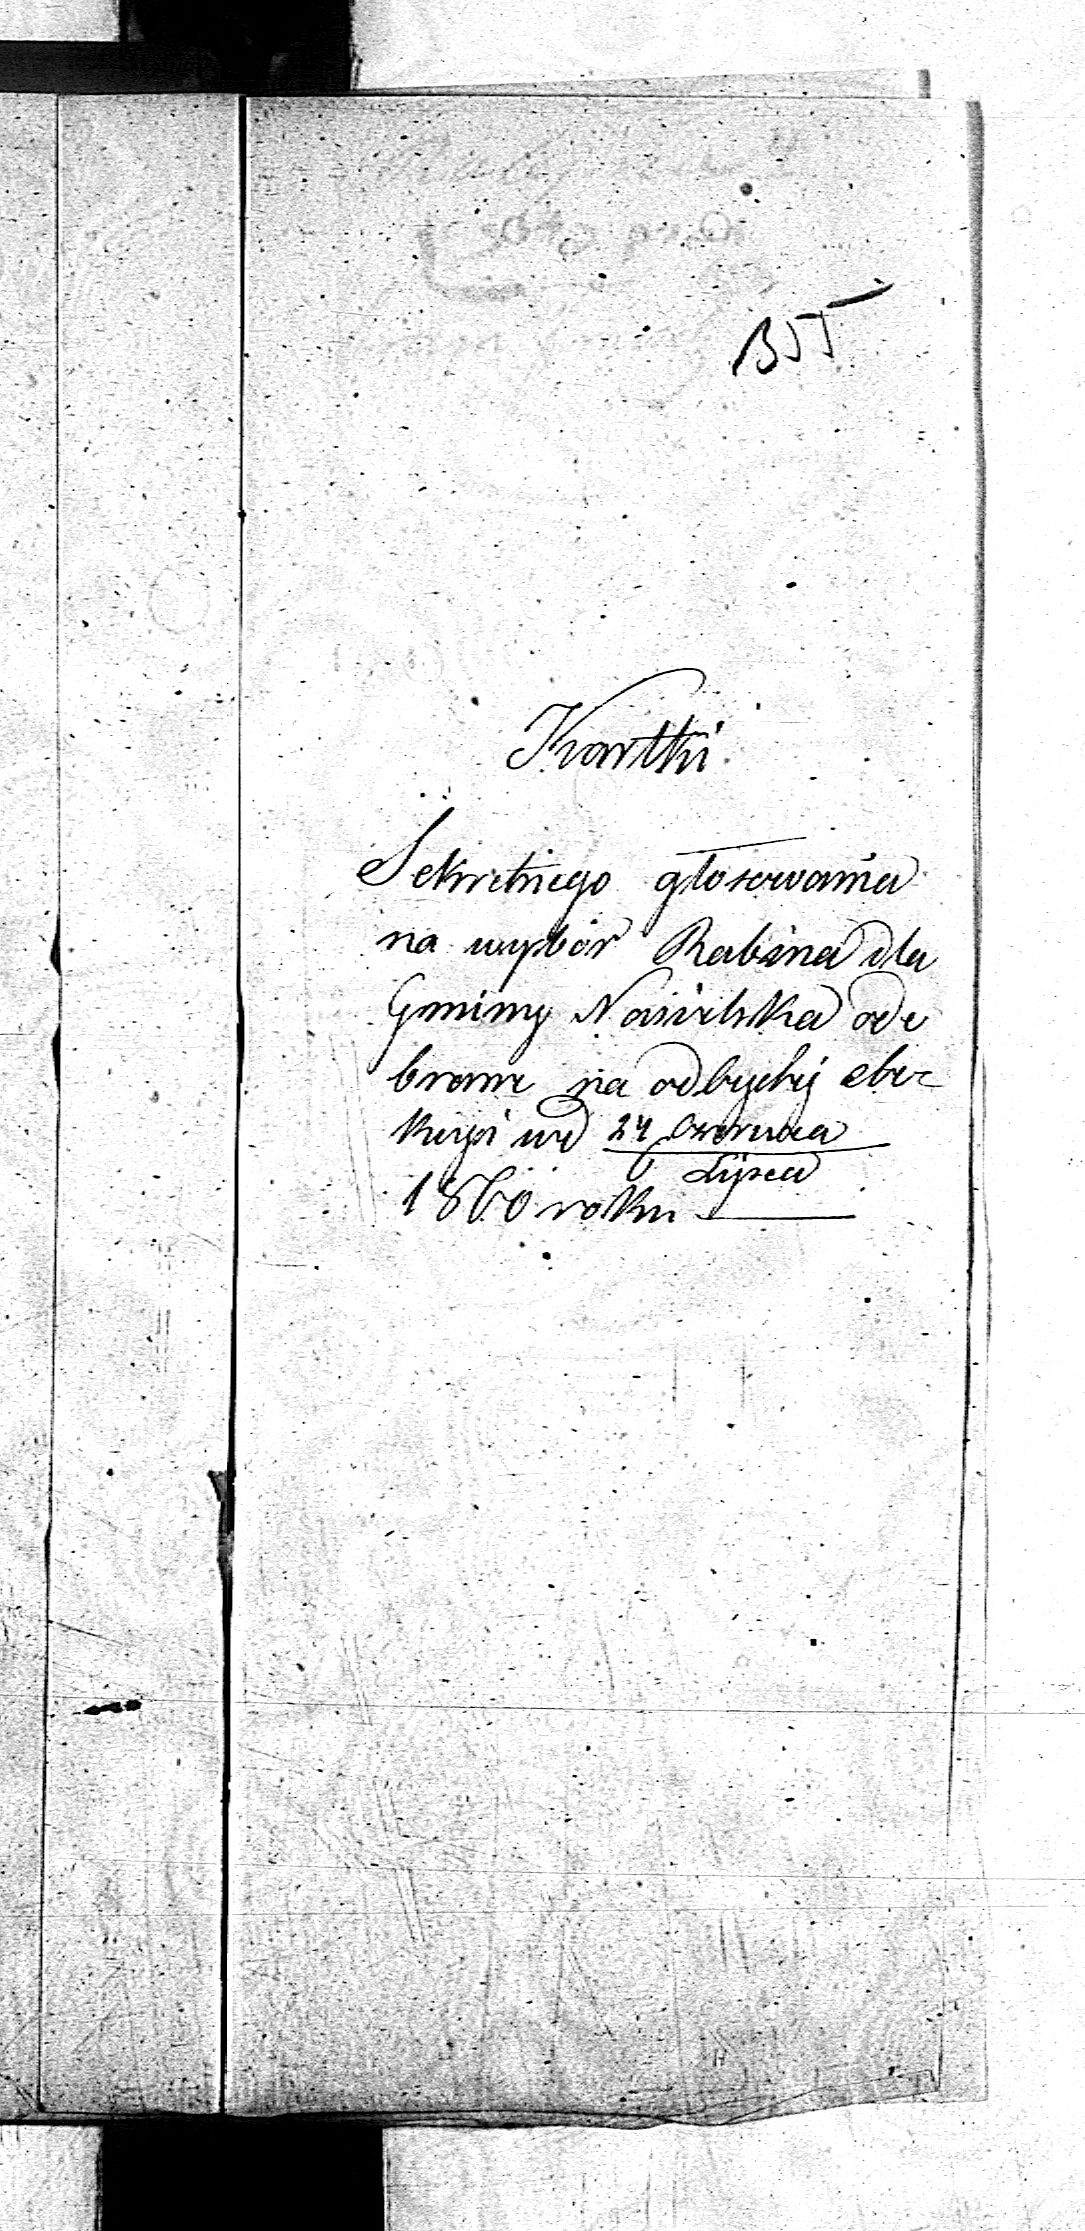 155
Kartki
Sekretnego głosowania
na wybór Rabina dla
Gminy Nasielska ode
brane na odbytej ele-
kcyi wd 24 Czerwca
6 Lipca
1860 roku